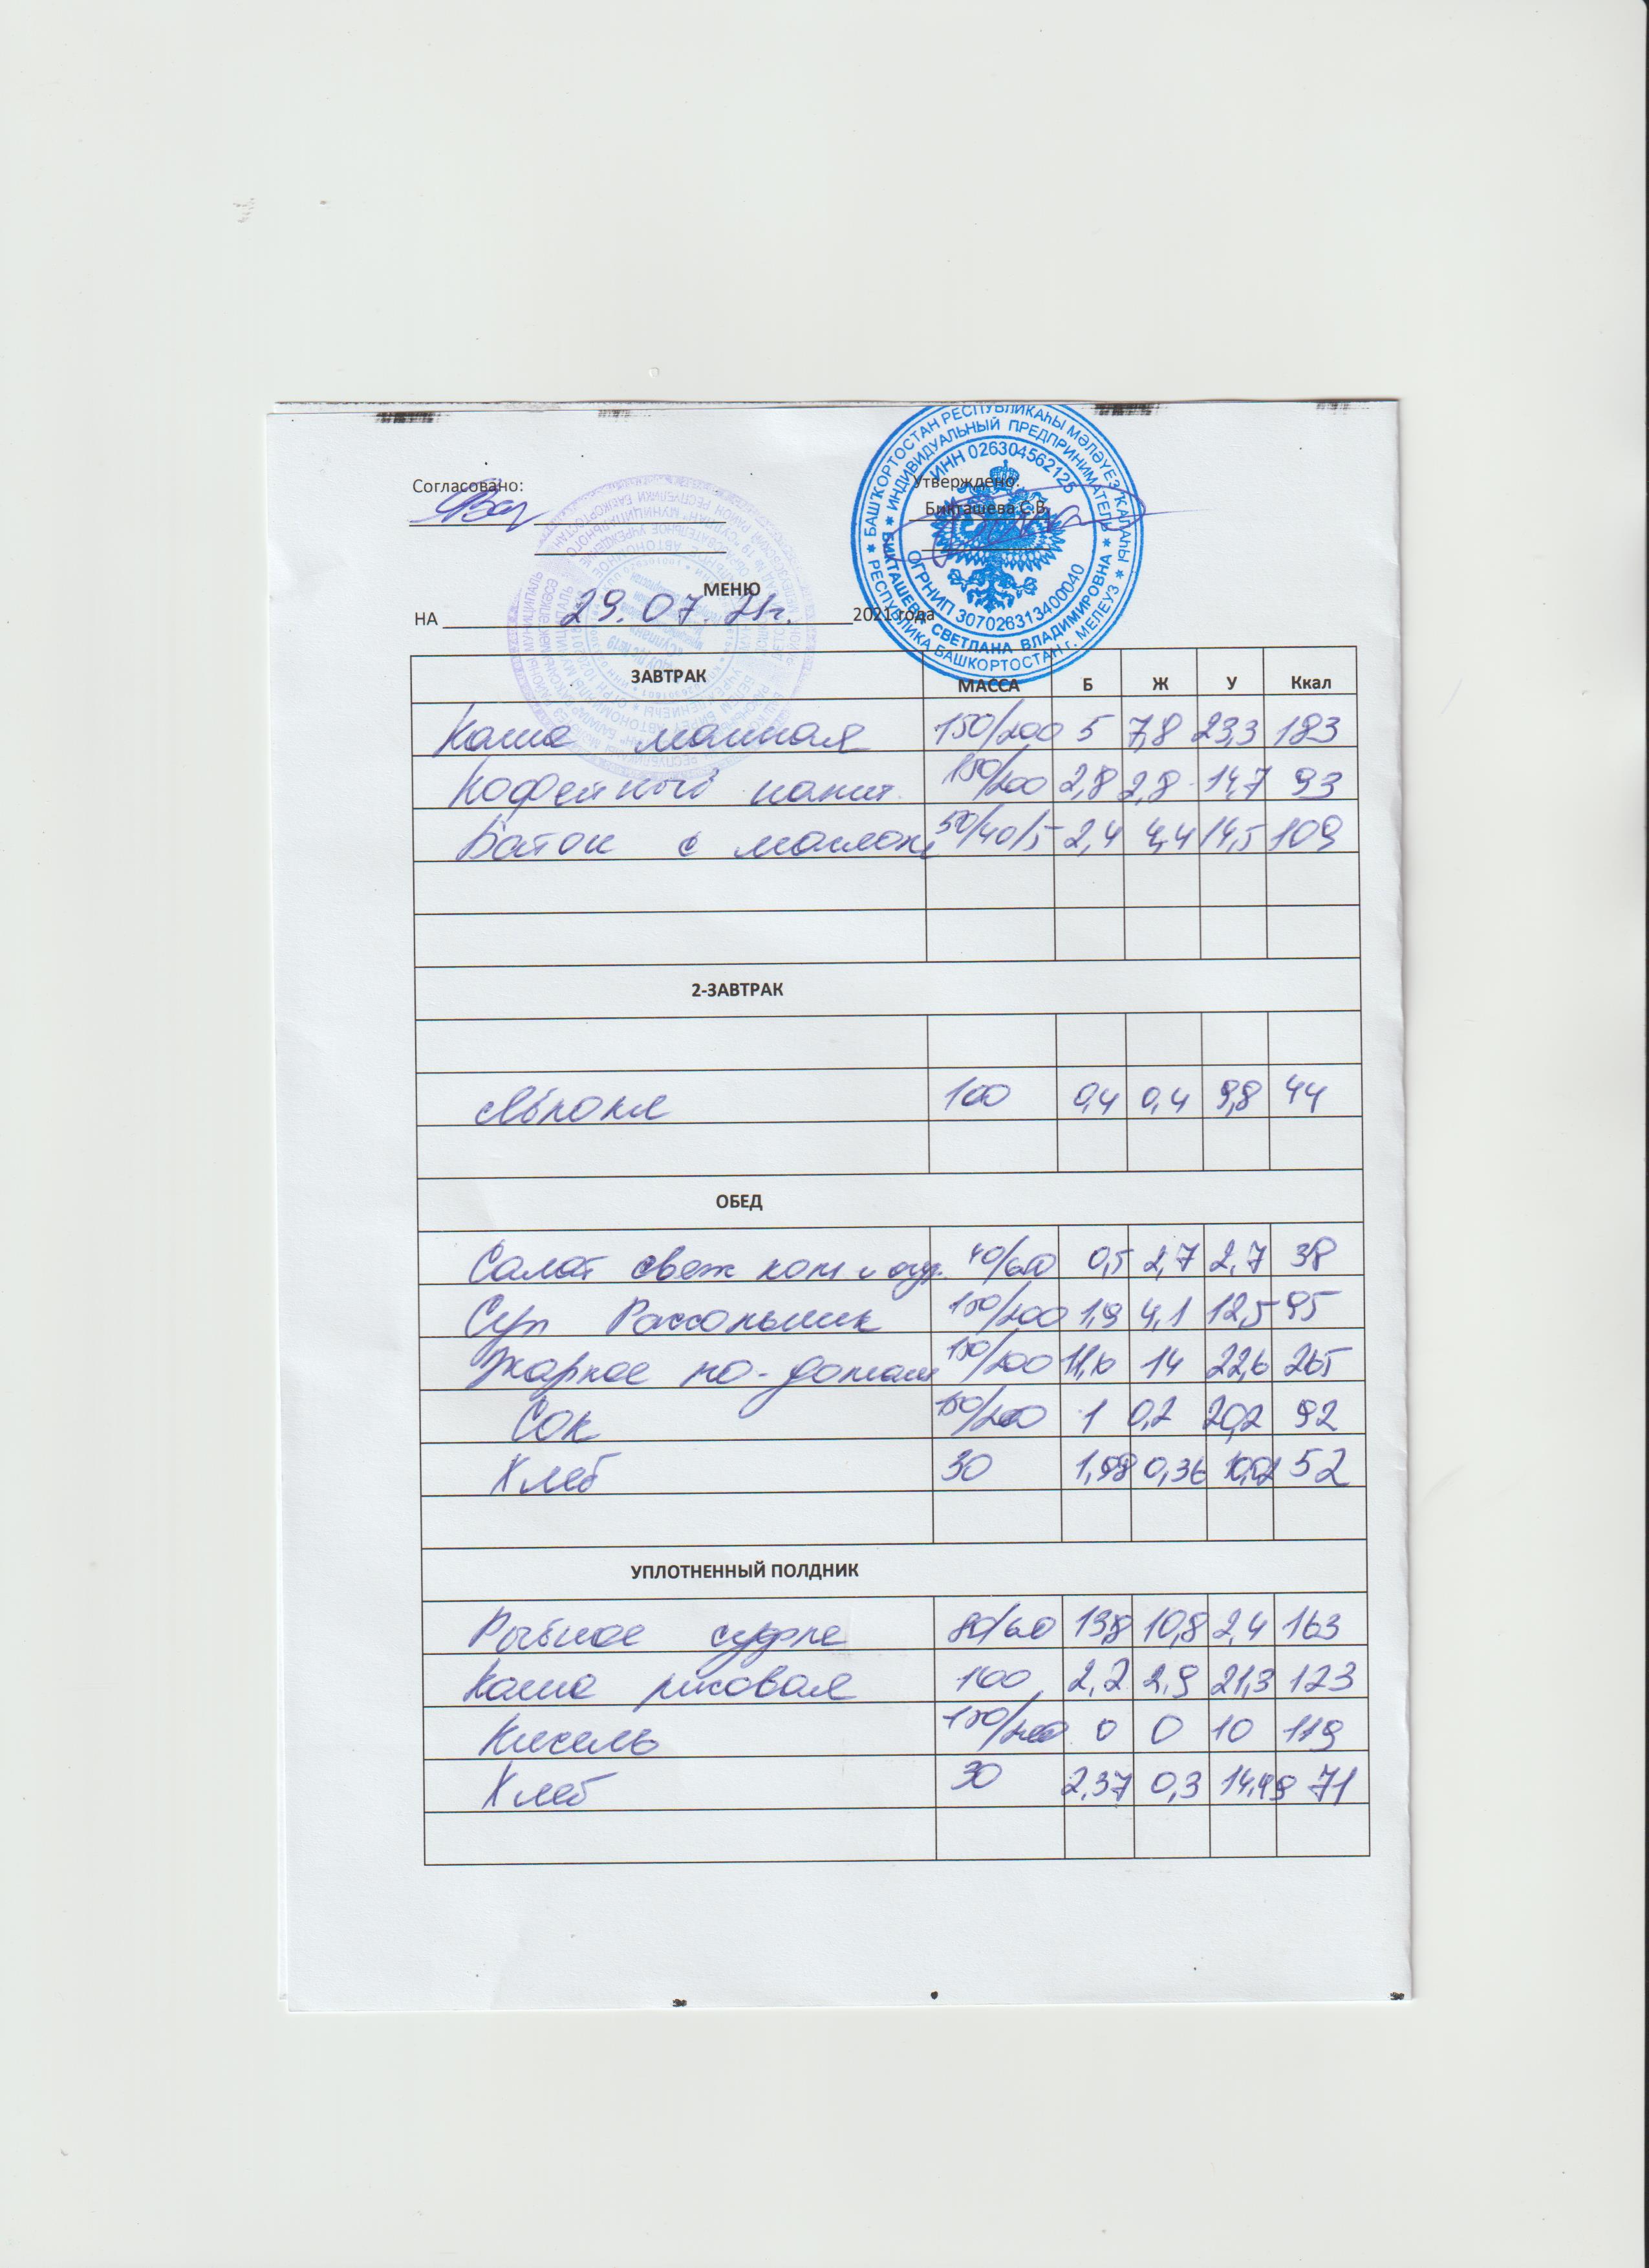 Согласовано:
Утверждено:
Бикташева С.В.
БАШҠОРТОСТАН РЕСПУБЛИКАҺЫ МӘЛӘҮЕЗ ҠАЛАҺЫ
РЕСПУБЛИКА БАШКОРТОСТАН г. МЕЛЕУЗ
ИНДИВИДУАЛЬНЫЙ ПРЕДПРИНИМАТЕЛЬ
БИКТАШЕВА СВЕТЛАНА ВЛАДИМИРОВНА
ИНН 026304562125
ОГРНИП 307026313400040
МЕНЮ
НА 29.07.21г. 2021 года
ЗАВТРАК МАССА Б Ж У Ккал
Каша манная 150/200 5 7,8 23,3 183
Кофейный напит. 150/200 2,8 2,8 14,7 93
Батон с маслом 50/40/5 2,4 4,4 14,5 109
2-ЗАВТРАК
Яблоки 100 0,4 0,4 9,8 44
ОБЕД
Салат свеж пом и огур. 40/60 0,5 2,7 2,7 38
Суп Рассольник 150/200 1,9 4,1 12,5 95
Жаркое по-домаш 150/200 11,6 14 22,6 265
Сок 150/200 1 0,2 20,2 92
Хлеб 30 1,98 0,36 10,02 52
УПЛОТНЕННЫЙ ПОЛДНИК
Рыбное суфле 80/60 13,8 10,8 2,4 163
Каша рисовая 100 2,2 2,9 21,3 123
Кисель 150/200 0 0 10 119
Хлеб 30 2,37 0,3 14,49 71